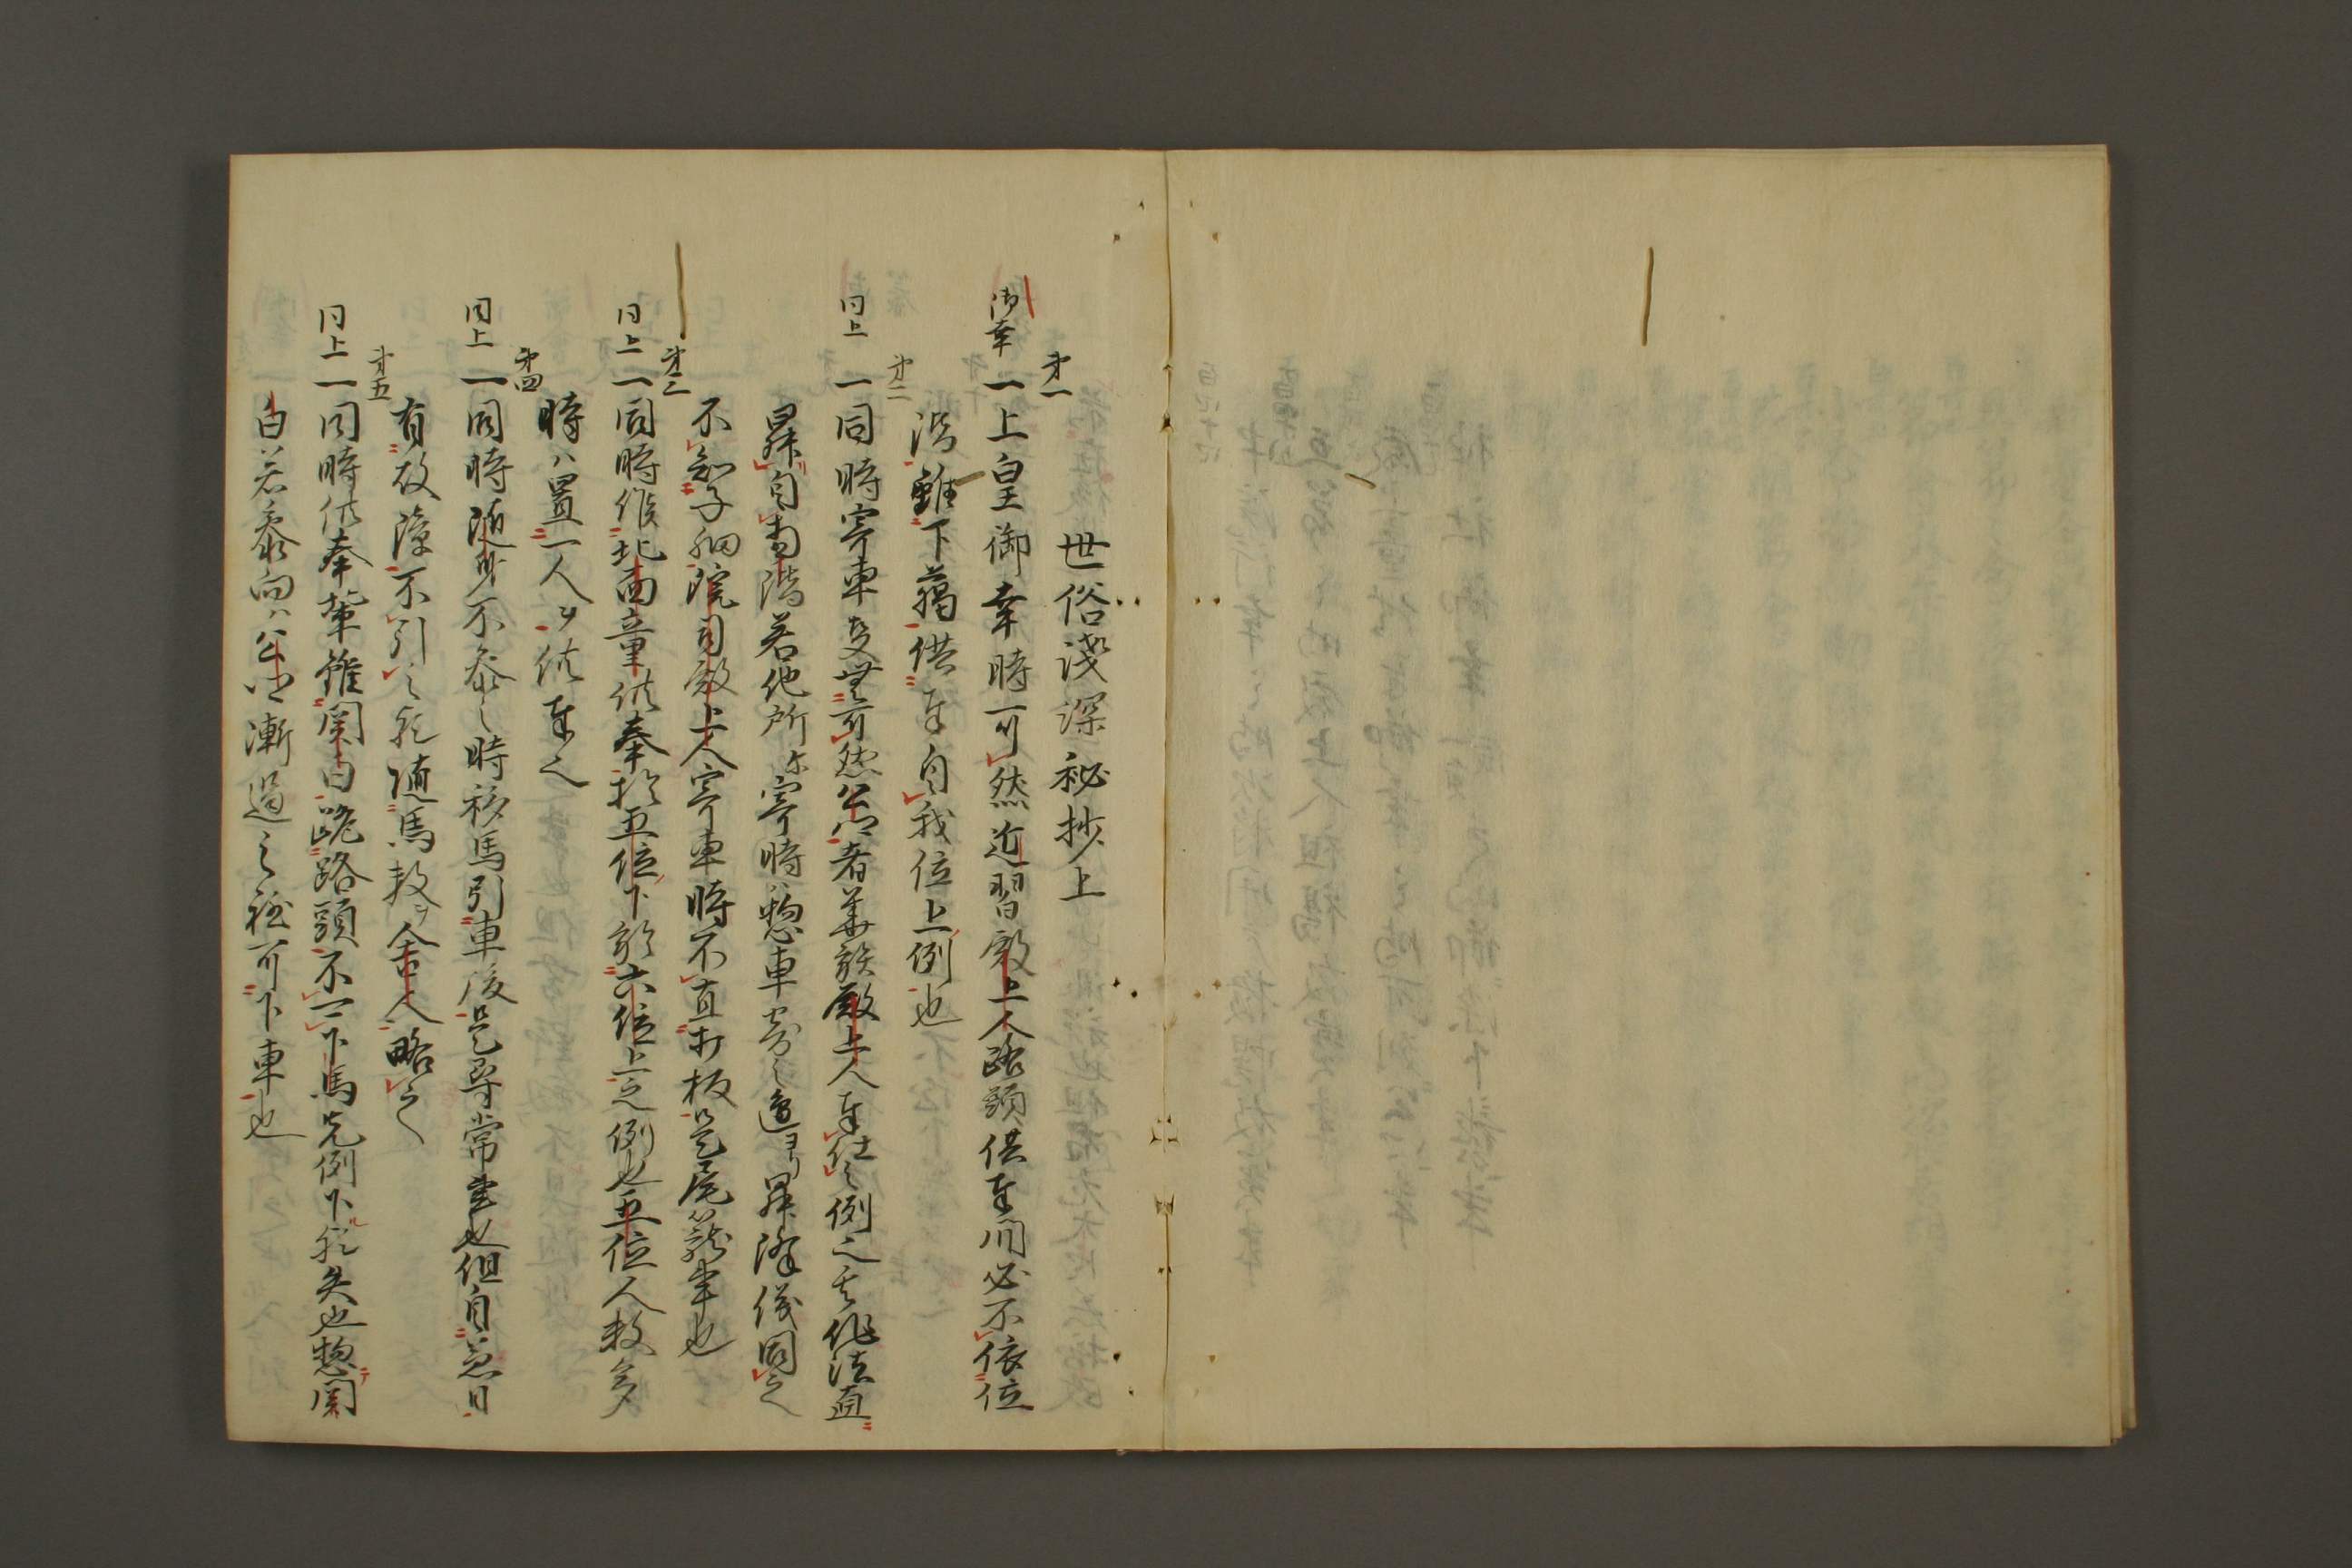 世俗淺深秘抄上
第一
御幸 一上皇御幸時可然近習殿上人路頭供奉間必不依位
階雖下﨟供奉自我位上例也
第二
同上 一同時寄車事無可然公卿者華族殿上人奉仕之例也其作法直
昇自南階若他所ニ寄時ハ懸車寄之邊ヨリ昇降儀同之
不知子細院司殿上人寄車時不直打板是尾籠事也
第三
同上 一同時候北面童供奉於五位下﨟六位上之例也五位人数多
時ハ置一人ヲ供奉之
第四
同上 一同時随身不参之時移馬引車後是尋常事也但自然日
有故障不引之於随馬数ヲ舎人略之
第五
同上 一同時供奉輩雖関白跪路頭不下馬先例下ル於失也惣テ関
白若参向ハ公卿漸過之程可下車也